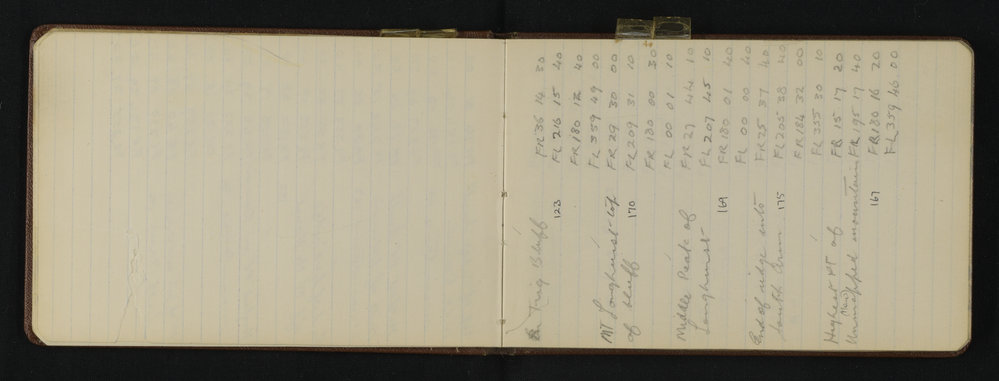 Trig Bluff FR 36 14 50
123 FL 216 15 40
FR 180 12 40
FL 359 49 00
MT Longhurst top FR 29 30 00
of bluff 170 FL 209 31 10
FR 180 00 30
FL 00 01 10
Middle Peak of FR 27 44 10
Longhurst FL 207 45 10
169 FR 180 01 40
FL 00 00 40
End of ridge into FR 25 37 40
South Arm 175 FL 205 38 40
FR 184 32 00
FL 355 30 10
Highest PT of FR 15 17 20
Unmapped mountain FL 195 17 40
167 FR 180 16 20
FL 359 46 00